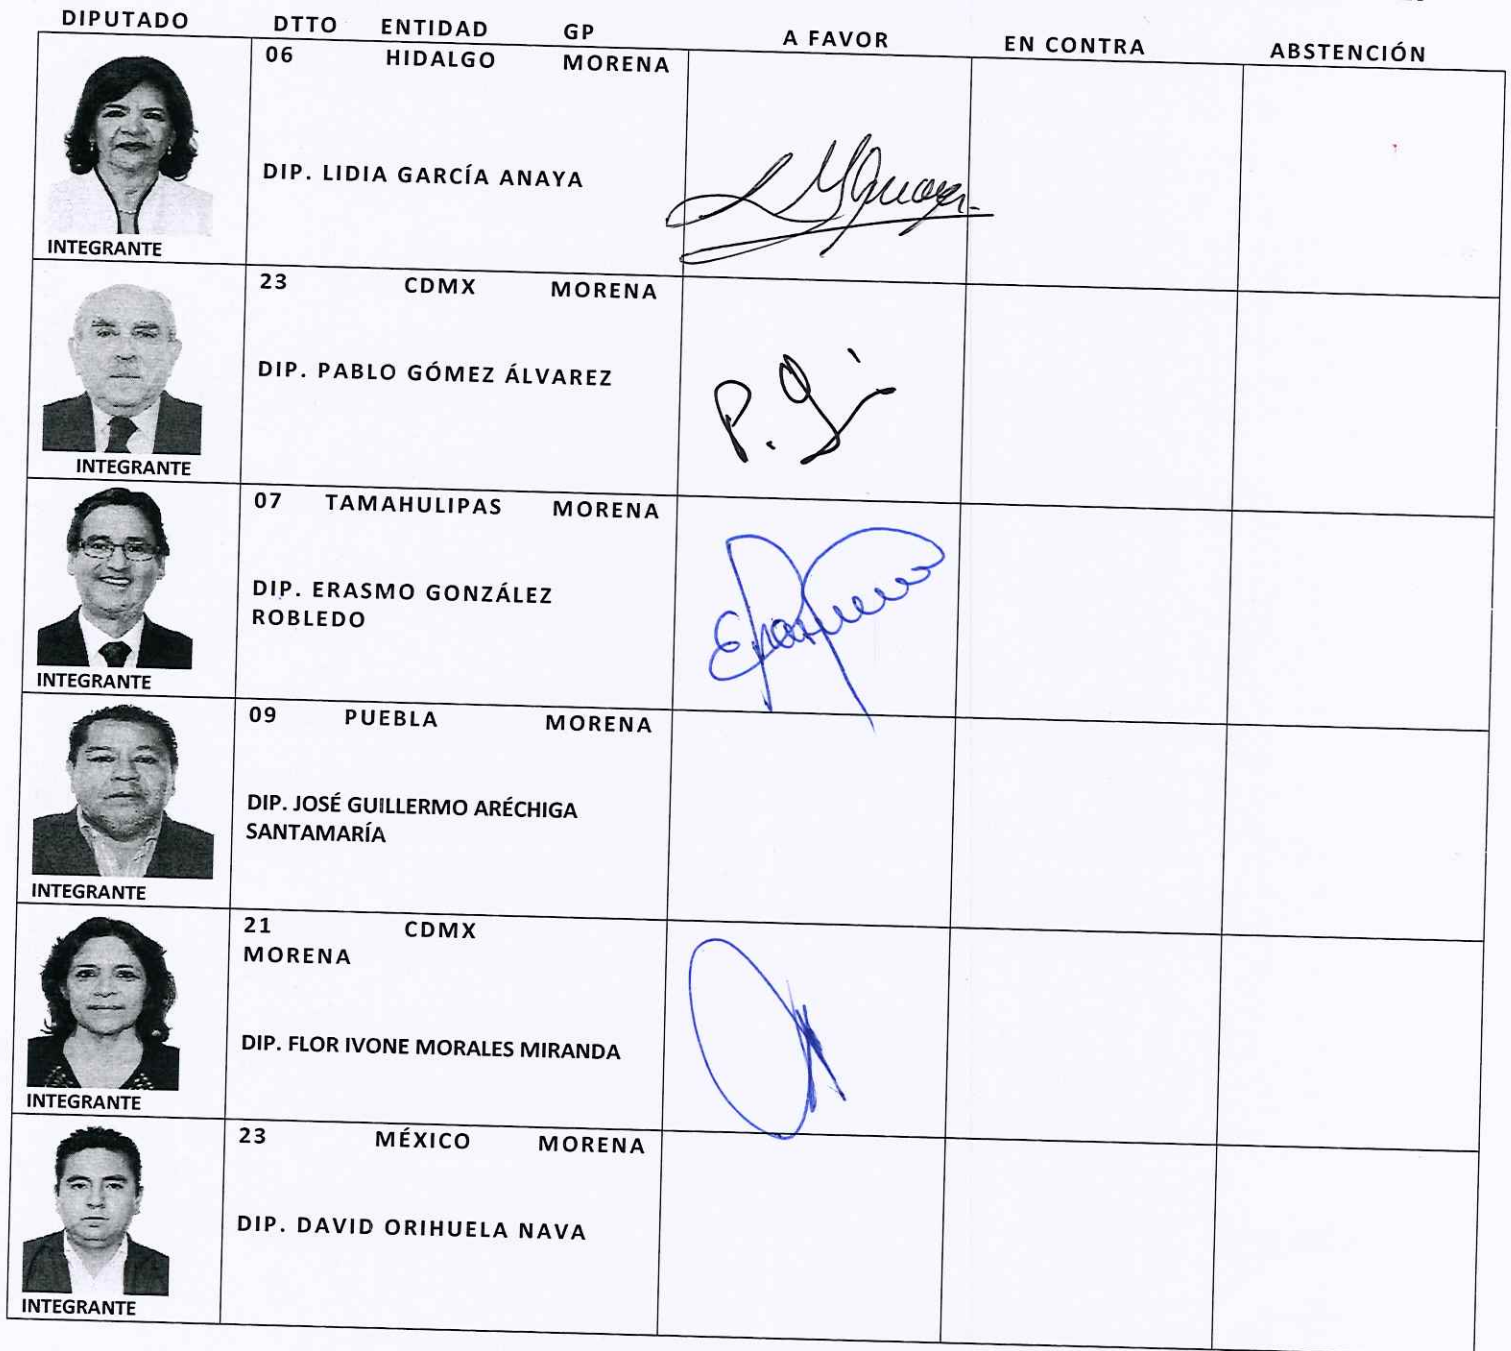 DIPUTADO DTTO ENTIDAD GP A FAVOR EN CONTRA ABSTENCIÓN
06 HIDALGO MORENA
DIP. LIDIA GARCÍA ANAYA
INTEGRANTE
23 CDMX MORENA
DIP. PABLO GÓMEZ ÁLVAREZ
P. G
INTEGRANTE
07 TAMAHULIPAS MORENA
DIP. ERASMO GONZÁLEZ
ROBLEDO
INTEGRANTE
09 PUEBLA MORENA
DIP. JOSÉ GUILLERMO ARÉCHIGA
SANTAMARÍA
INTEGRANTE
21 CDMX
MORENA
DIP. FLOR IVONE MORALES MIRANDA
INTEGRANTE
23 MÉXICO MORENA
DIP. DAVID ORIHUELA NAVA
INTEGRANTE